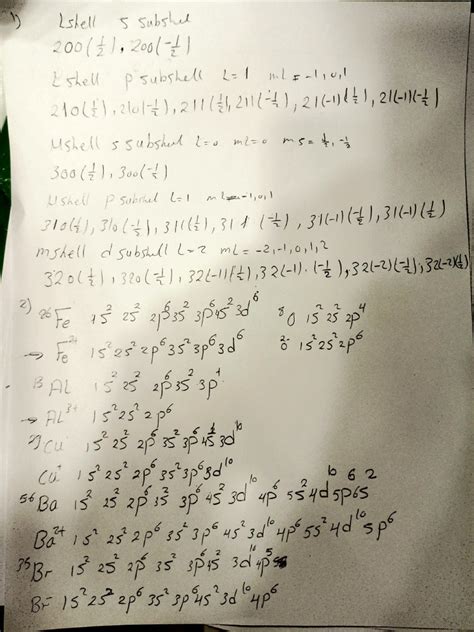 1) Lshell s subshell
200(1/2), 200(-1/2)
Lshell p subshell L=1 ml=-1,0,1
210(1/2), 210(-1/2), 211(1/2), 211(-1/2), 21(-1)(1/2), 21(-1)(-1/2)
Mshell s subshell L=0 ml=0 ms=
300(1/2), 300(-1/2)
Mshell p subshell L=1 ml=-1,0,1
310(1/2), 310(-1/2), 311(1/2), 311 (-1/2), 31(-1)(-1/2), 31(-1)(1/2)
mshell d subshell L=2 ml=-2,-1,0,1,2
320(1/2), 320(-1/2), 32(-1)(1/2), 32(-1).(-1/2), 32(-2)(-1/2), 32(-2)(1/2)
2) 26Fe 1s² 2s² 2p⁶3s² 3p⁶4s² 3d⁶ 8O 1s² 2s² 2p⁴
→ Fe²⁺ 1s² 2s² 2p⁶ 3s² 3p⁶ 3d⁶ O²⁻ 1s² 2s² 2p⁶
13 AL 1s² 2s² 2p⁶ 3s² 3p¹
→ AL³⁺ 1s² 2s² 2p⁶
29 Cu 1s² 2s² 2p⁶ 3s² 3p⁶ 4s¹ 3d¹⁰
Cu⁺ 1s² 2s² 2p⁶ 3s² 3p⁶ 3d¹⁰
56 Ba 1s² 2s² 2p⁶ 3s² 3p⁶ 4s² 3d¹⁰ 4p⁶ 5s² 4d¹⁰ 5p⁶ 6s²
Ba²⁺ 1s² 2s² 2p⁶ 3s² 3p⁶ 4s² 3d¹⁰ 4p⁶ 5s² 4d¹⁰ 5p⁶
35 Br 1s² 2s² 2p⁶ 3s² 3p⁶ 4s² 3d¹⁰ 4p⁵
Br⁻ 1s² 2s² 2p⁶ 3s² 3p⁶ 4s² 3d¹⁰ 4p⁶